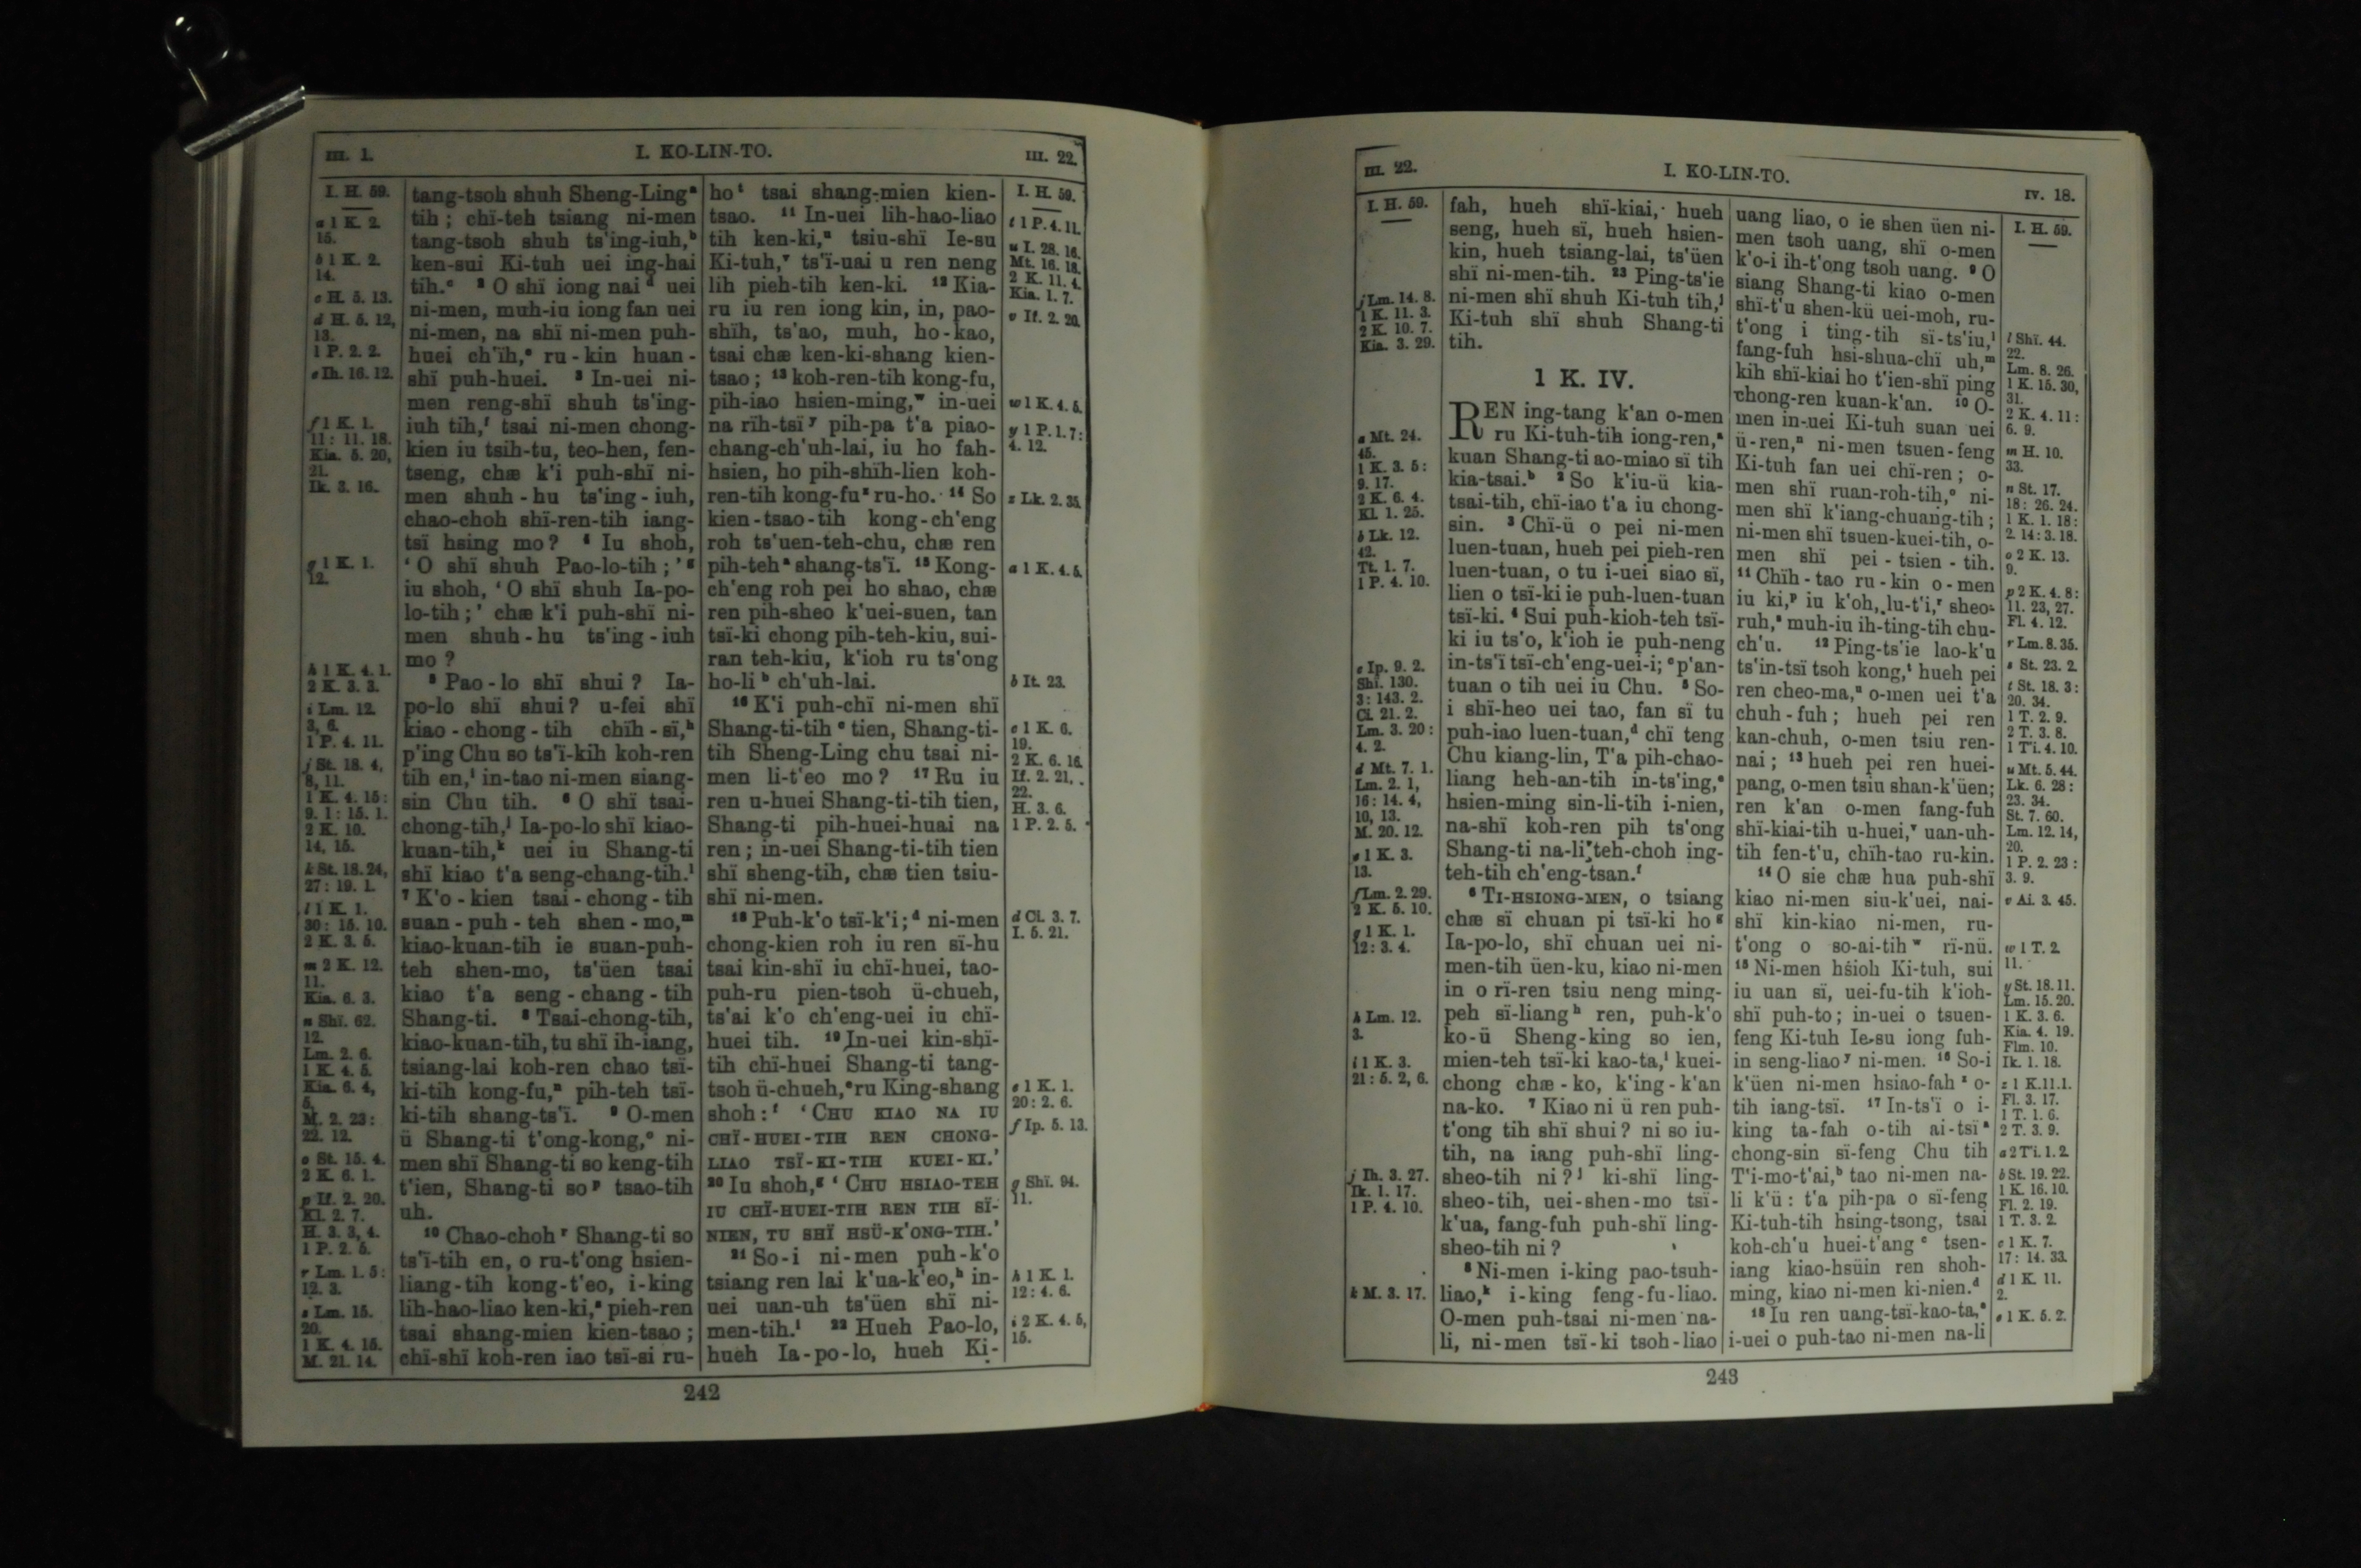 III. 1.
I. KO-LIN-TO.
III. 22.
I. H. 59.
a 1 K. 2.
15.
b 1 K. 2.
14.
c H. 5. 13.
d H. 5. 12,
13.
1 P. 2. 2.
e Ih. 16. 12.
f 1 K. 1.
11: 11. 18.
Kia. 5. 20,
21.
Ik. 3. 16.
g 1 K. 1.
12.
h 1 K. 4. 1.
2 K. 3. 3.
i Lm. 12.
3, 6.
1 P. 4. 11.
j St. 18. 4,
8, 11.
1 K. 4. 15:
9. 1: 15. 1.
2 K. 10.
14, 15.
k St. 18. 24,
27: 19. 1.
l 1 K. 1.
30: 15. 10.
2 K. 3. 5.
m 2 K. 12.
11.
Kia. 6. 3.
n Shï. 62.
12.
Lm. 2. 6.
1 K. 4. 5.
Kia. 6. 4,
5.
M. 2. 23:
22. 12.
o St. 15. 4.
2 K. 6. 1.
p If. 2. 20.
Kl. 2. 7.
H. 3. 3, 4.
1 P. 2. 5.
r Lm. 1. 5:
12. 3.
s Lm. 15.
20.
1 K. 4. 15.
M. 21. 14.
tang-tsoh shuh Sheng-Ling a
tih; chï-teh tsiang ni-men
tang-tsoh shuh ts'ing-iuh, b
ken-sui Ki-tuh uei ing-hai
tih. c 2 O shï iong nai d uei
ni-men, muh-iu iong fan uei
ni-men, na shï ni-men puh-
huei ch'ïh, e ru-kin huan-
shï puh-huei. 3 In-uei ni-
men reng-shï shuh ts'ing-
iuh tih, f tsai ni-men chong-
kien iu tsih-tu, teo-hen, fen-
tseng, chæ k'i puh-shï ni-
men shuh-hu ts'ing-iuh,
chao-choh shï-ren-tih iang-
tsï hsing mo? 4 Iu shoh,
'O shï shuh Pao-lo-tih;' g
iu shoh, 'O shï shuh Ia-po-
lo-tih;' chæ k'i puh-shï ni-
men shuh-hu ts'ing-iuh
mo?
5 Pao-lo shï shui? Ia-
po-lo shï shui? u-fei shï
kiao-chong-tih chïh-sï, h
p'ing Chu so ts'ï-kih koh-ren
tih en, i in-tao ni-men siang-
sin Chu tih. 6 O shï tsai-
chong-tih, j Ia-po-lo shï kiao-
kuan-tih, k uei iu Shang-ti
shï kiao t'a seng-chang-tih. l
7 K'o-kien tsai-chong-tih
suan-puh-teh shen-mo, m
kiao-kuan-tih ie suan-puh-
teh shen-mo, ts'üen tsai
kiao t'a seng-chang-tih
Shang-ti. 8 Tsai-chong-tih,
kiao-kuan-tih, tu shï ih-iang,
tsiang-lai koh-ren chao tsï-
ki-tih kong-fu, n pih-teh tsï-
ki-tih shang-ts'ï. 9 O-men
ü Shang-ti t'ong-kong, o ni-
men shï Shang-ti so keng-tih
t'ien, Shang-ti so p tsao-tih
uh.
10 Chao-choh r Shang-ti so
ts'ï-tih en, o ru-t'ong hsien-
liang-tih kong-t'eo, i-king
lih-hao-liao ken-ki, s pieh-ren
tsai shang-mien kien-tsao;
chï-shï koh-ren iao tsï-si ru-
ho t tsai shang-mien kien-
tsao. 11 In-uei lih-hao-liao
tih ken-ki, u tsiu-shï Ie-su
Ki-tuh, v ts'ï-uai u ren neng
lih pieh-tih ken-ki. 12 Kia-
ru iu ren iong kin, in, pao-
shïh, ts'ao, muh, ho-kao,
tsai chæ ken-ki-shang kien-
tsao; 13 koh-ren-tih kong-fu,
pih-iao hsien-ming, w in-uei
na rïh-tsï y pih-pa t'a piao-
chang-ch'uh-lai, iu ho fah-
hsien, ho pih-shïh-lien koh-
ren-tih kong-fu z ru-ho. 14 So
kien-tsao-tih kong-ch'eng
roh ts'uen-teh-chu, chæ ren
pih-teh a shang-ts'ï. 15 Kong-
ch'eng roh pei ho shao, chæ
ren pih-sheo k'uei-suen, tan
tsï-ki chong pih-teh-kiu, sui-
ran teh-kiu, k'ioh ru ts'ong
ho-li b ch'uh-lai.
16 K'i puh-chï ni-men shï
Shang-ti-tih c tien, Shang-ti-
tih Sheng-Ling chu tsai ni-
men li-t'eo mo? 17 Ru iu
ren u-huei Shang-ti-tih tien,
Shang-ti pih-huei-huai na
ren; in-uei Shang-ti-tih tien
shï sheng-tih, chæ tien tsiu-
shï ni-men.
18 Puh-k'o tsï-k'i; d ni-men
chong-kien roh iu ren sï-hu
tsai kin-shï iu chï-huei, tao-
puh-ru pien-tsoh ü-chueh,
ts'ai k'o ch'eng-uei iu chï-
huei tih. 19 In-uei kin-shï-
tih chï-huei Shang-ti tang-
tsoh ü-chueh, e ru King-shang
shoh: f 'CHU KIAO NA IU
CHÏ-HUEI-TIH REN CHONG-
LIAO TSÏ-KI-TIH KUEI-KI.'
20 Iu shoh, g 'CHU HSIAO-TEH
IU CHÏ-HUEI-TIH REN TIH SÏ-
NIEN, TU SHÏ HSÜ-K'ONG-TIH.'
21 So-i ni-men puh-k'o
tsiang ren lai k'ua-k'eo, h in-
uei uan-uh ts'üen shï ni-
men-tih. i 22 Hueh Pao-lo,
hueh Ia-po-lo, hueh Ki-
I. H. 59.
t 1 P. 4. 11.
u I. 28. 16.
Mt. 16. 18.
2 K. 11. 4.
Kia. 1. 7.
v If. 2. 20.
w 1 K. 4. 5.
y 1 P. 1. 7:
4. 12.
z Lk. 2. 35.
a 1 K. 4. 5.
b It. 23.
c 1 K. 6.
19.
2 K. 6. 16.
If. 2. 21,
22.
H. 3. 6.
1 P. 2. 5.
d Cl. 3. 7.
I. 5. 21.
e 1 K. 1.
20: 2. 6.
f Ip. 5. 13.
g Shï. 94.
11.
h 1 K. 1.
12: 4. 6.
i 2 K. 4. 5,
15.
242
III. 22.
I. KO-LIN-TO.
IV. 18.
I. H. 59.
j Lm. 14. 8.
1 K. 11. 3.
2 K. 10. 7.
Kia. 3. 29.
a Mt. 24.
45.
1 K. 3. 5:
9. 17.
2 K. 6. 4.
Kl. 1. 25.
b Lk. 12.
42.
Tt. 1. 7.
1 P. 4. 10.
c Ip. 9. 2.
Shï. 130.
3: 143. 2.
Cl. 21. 2.
Lm. 3. 20:
4. 2.
d Mt. 7. 1.
Lm. 2. 1,
16: 14. 4,
10, 13.
M. 20. 12.
e 1 K. 3.
13.
f Lm. 2. 29.
2 K. 5. 10.
g 1 K. 1.
12: 3. 4.
h Lm. 12.
3.
i 1 K. 3.
21: 5. 2, 6.
j Ih. 3. 27.
Ik. 1. 17.
1 P. 4. 10.
k M. 3. 17.
fah, hueh shï-kiai, hueh
seng, hueh sï, hueh hsien-
kin, hueh tsiang-lai, ts'üen
shï ni-men-tih. 23 Ping-ts'ie
ni-men shï shuh Ki-tuh tih, j
Ki-tuh shï shuh Shang-ti
tih.
1 K. IV.
REN ing-tang k'an o-men
ru Ki-tuh-tih iong-ren, a
kuan Shang-ti ao-miao sï tih
kia-tsai. b 2 So k'iu-ü kia-
tsai-tih, chï-iao t'a iu chong-
sin. 3 Chï-ü o pei ni-men
luen-tuan, hueh pei pieh-ren
luen-tuan, o tu i-uei siao sï,
lien o tsï-ki ie puh-luen-tuan
tsï-ki. 4 Sui puh-kioh-teh tsï-
ki iu ts'o, k'ioh ie puh-neng
in-ts'ï tsï-ch'eng-uei-i; c p'an-
tuan o tih uei iu Chu. 5 So-
i shï-heo uei tao, fan sï tu
puh-iao luen-tuan, d chï teng
Chu kiang-lin, T'a pih-chao-
liang heh-an-tih in-ts'ing, e
hsien-ming sin-li-tih i-nien,
na-shï koh-ren pih ts'ong
Shang-ti na-li teh-choh ing-
teh-tih ch'eng-tsan. f
6 TI-HSIONG-MEN, o tsiang
chæ sï chuan pi tsï-ki ho g
Ia-po-lo, shï chuan uei ni-
men-tih üen-ku, kiao ni-men
in o rï-ren tsiu neng ming-
peh sï-liang h ren, puh-k'o
ko-ü Sheng-king so ien,
mien-teh tsï-ki kao-ta, i kuei-
chong chæ-ko, k'ing-k'an
na-ko. 7 Kiao ni ü ren puh-
t'ong tih shï shui? ni so iu-
tih, na iang puh-shï ling-
sheo-tih ni? j ki-shï ling-
sheo-tih, uei-shen-mo tsï-
k'ua, fang-fuh puh-shï ling-
sheo-tih ni?
8 Ni-men i-king pao-tsuh-
liao, k i-king feng-fu-liao.
O-men puh-tsai ni-men na-
li, ni-men tsï-ki tsoh-liao
uang liao, o ie shen üen ni-
men tsoh uang, shï o-men
k'o-i ih-t'ong tsoh uang. 9 O
siang Shang-ti kiao o-men
shï-t'u shen-kü uei-moh, ru-
t'ong i ting-tih sï-ts'iu, l
fang-fuh hsi-shua-chï uh, m
kih shï-kiai ho t'ien-shï ping
chong-ren kuan-k'an. 10 O-
men in-uei Ki-tuh suan uei
ü-ren, n ni-men tsuen-feng
Ki-tuh fan uei chï-ren; o-
men shï ruan-roh-tih, o ni-
men shï k'iang-chuang-tih;
ni-men shï tsuen-kuei-tih, o-
men shï pei-tsien-tih.
11 Chïh-tao ru-kin o-men
iu ki, p iu k'oh, lu-t'i, r sheo-
ruh, s muh-iu ih-ting-tih chu-
ch'u. 12 Ping-ts'ie lao-k'u
ts'in-tsï tsoh kong, t hueh pei
ren cheo-ma, u o-men uei t'a
chuh-fuh; hueh pei ren
kan-chuh, o-men tsiu ren-
nai; 13 hueh pei ren huei-
pang, o-men tsiu shan-k'üen;
ren k'an o-men fang-fuh
shï-kiai-tih u-huei, v uan-uh-
tih fen-t'u, chïh-tao ru-kin.
14 O sie chæ hua puh-shï
kiao ni-men siu-k'uei, nai-
shï kin-kiao ni-men, ru-
t'ong o so-ai-tih w rï-nü.
15 Ni-men hsioh Ki-tuh, sui
iu uan sï, uei-fu-tih k'ioh-
shï puh-to; in-uei o tsuen-
feng Ki-tuh Ie-su iong fuh-
in seng-liao y ni-men. 16 So-i
k'üen ni-men hsiao-fah z o-
tih iang-tsï. 17 In-ts'ï o i-
king ta-fah o-tih ai-tsï a
chong-sin sï-feng Chu tih
T'i-mo-t'ai, b tao ni-men na-
li k'ü: t'a pih-pa o sï-feng
Ki-tuh-tih hsing-tsong, tsai
koh-ch'u huei-t'ang c tsen-
iang kiao-hsüin ren shoh-
ming, kiao ni-men ki-nien. d
18 Iu ren uang-tsï-kao-ta, e
i-uei o puh-tao ni-men na-li
I. H. 59.
l Shï. 44.
22.
Lm. 8. 26.
1 K. 15. 30,
31.
2 K. 4. 11:
6. 9.
m H. 10.
33.
n St. 17.
18: 26. 24.
1 K. 1. 18:
2. 14: 3. 18.
o 2 K. 13.
9.
p 2 K. 4. 8:
11. 23, 27.
Fl. 4. 12.
r Lm. 8. 35.
s St. 23. 2.
t St. 18. 3:
20. 34.
1 T. 2. 9.
2 T. 3. 8.
1 Ti. 4. 10.
u Mt. 5. 44.
Lk. 6. 28:
23. 34.
St. 7. 60.
Lm. 12. 14,
20.
1 P. 2. 23:
3. 9.
v Ai. 3. 45.
w 1 T. 2.
11.
y St. 18. 11.
Lm. 15. 20.
1 K. 3. 6.
Kia. 4. 19.
Flm. 10.
Ik. 1. 18.
z 1 K. 11. 1.
Fl. 3. 17.
1 T. 1. 6.
2 T. 3. 9.
a 2 Ti. 1. 2.
b St. 19. 22.
1 K. 16. 10.
Fl. 2. 19.
1 T. 3. 2.
c 1 K. 7.
17: 14. 33.
d 1 K. 11.
2.
e 1 K. 5. 2.
243